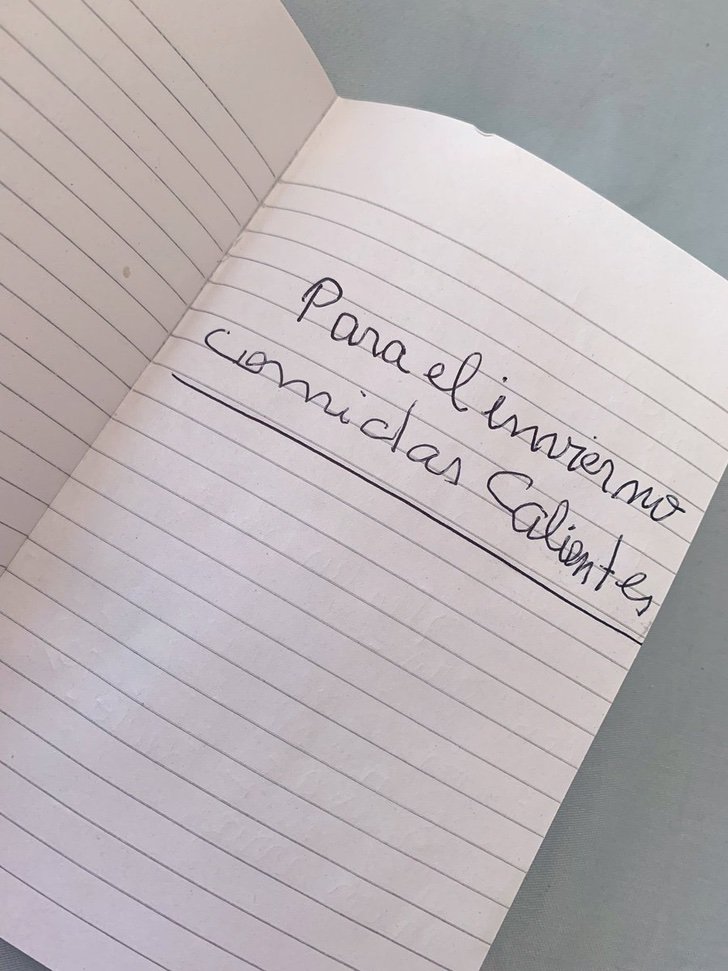 Para el invierno
comidas Calientes